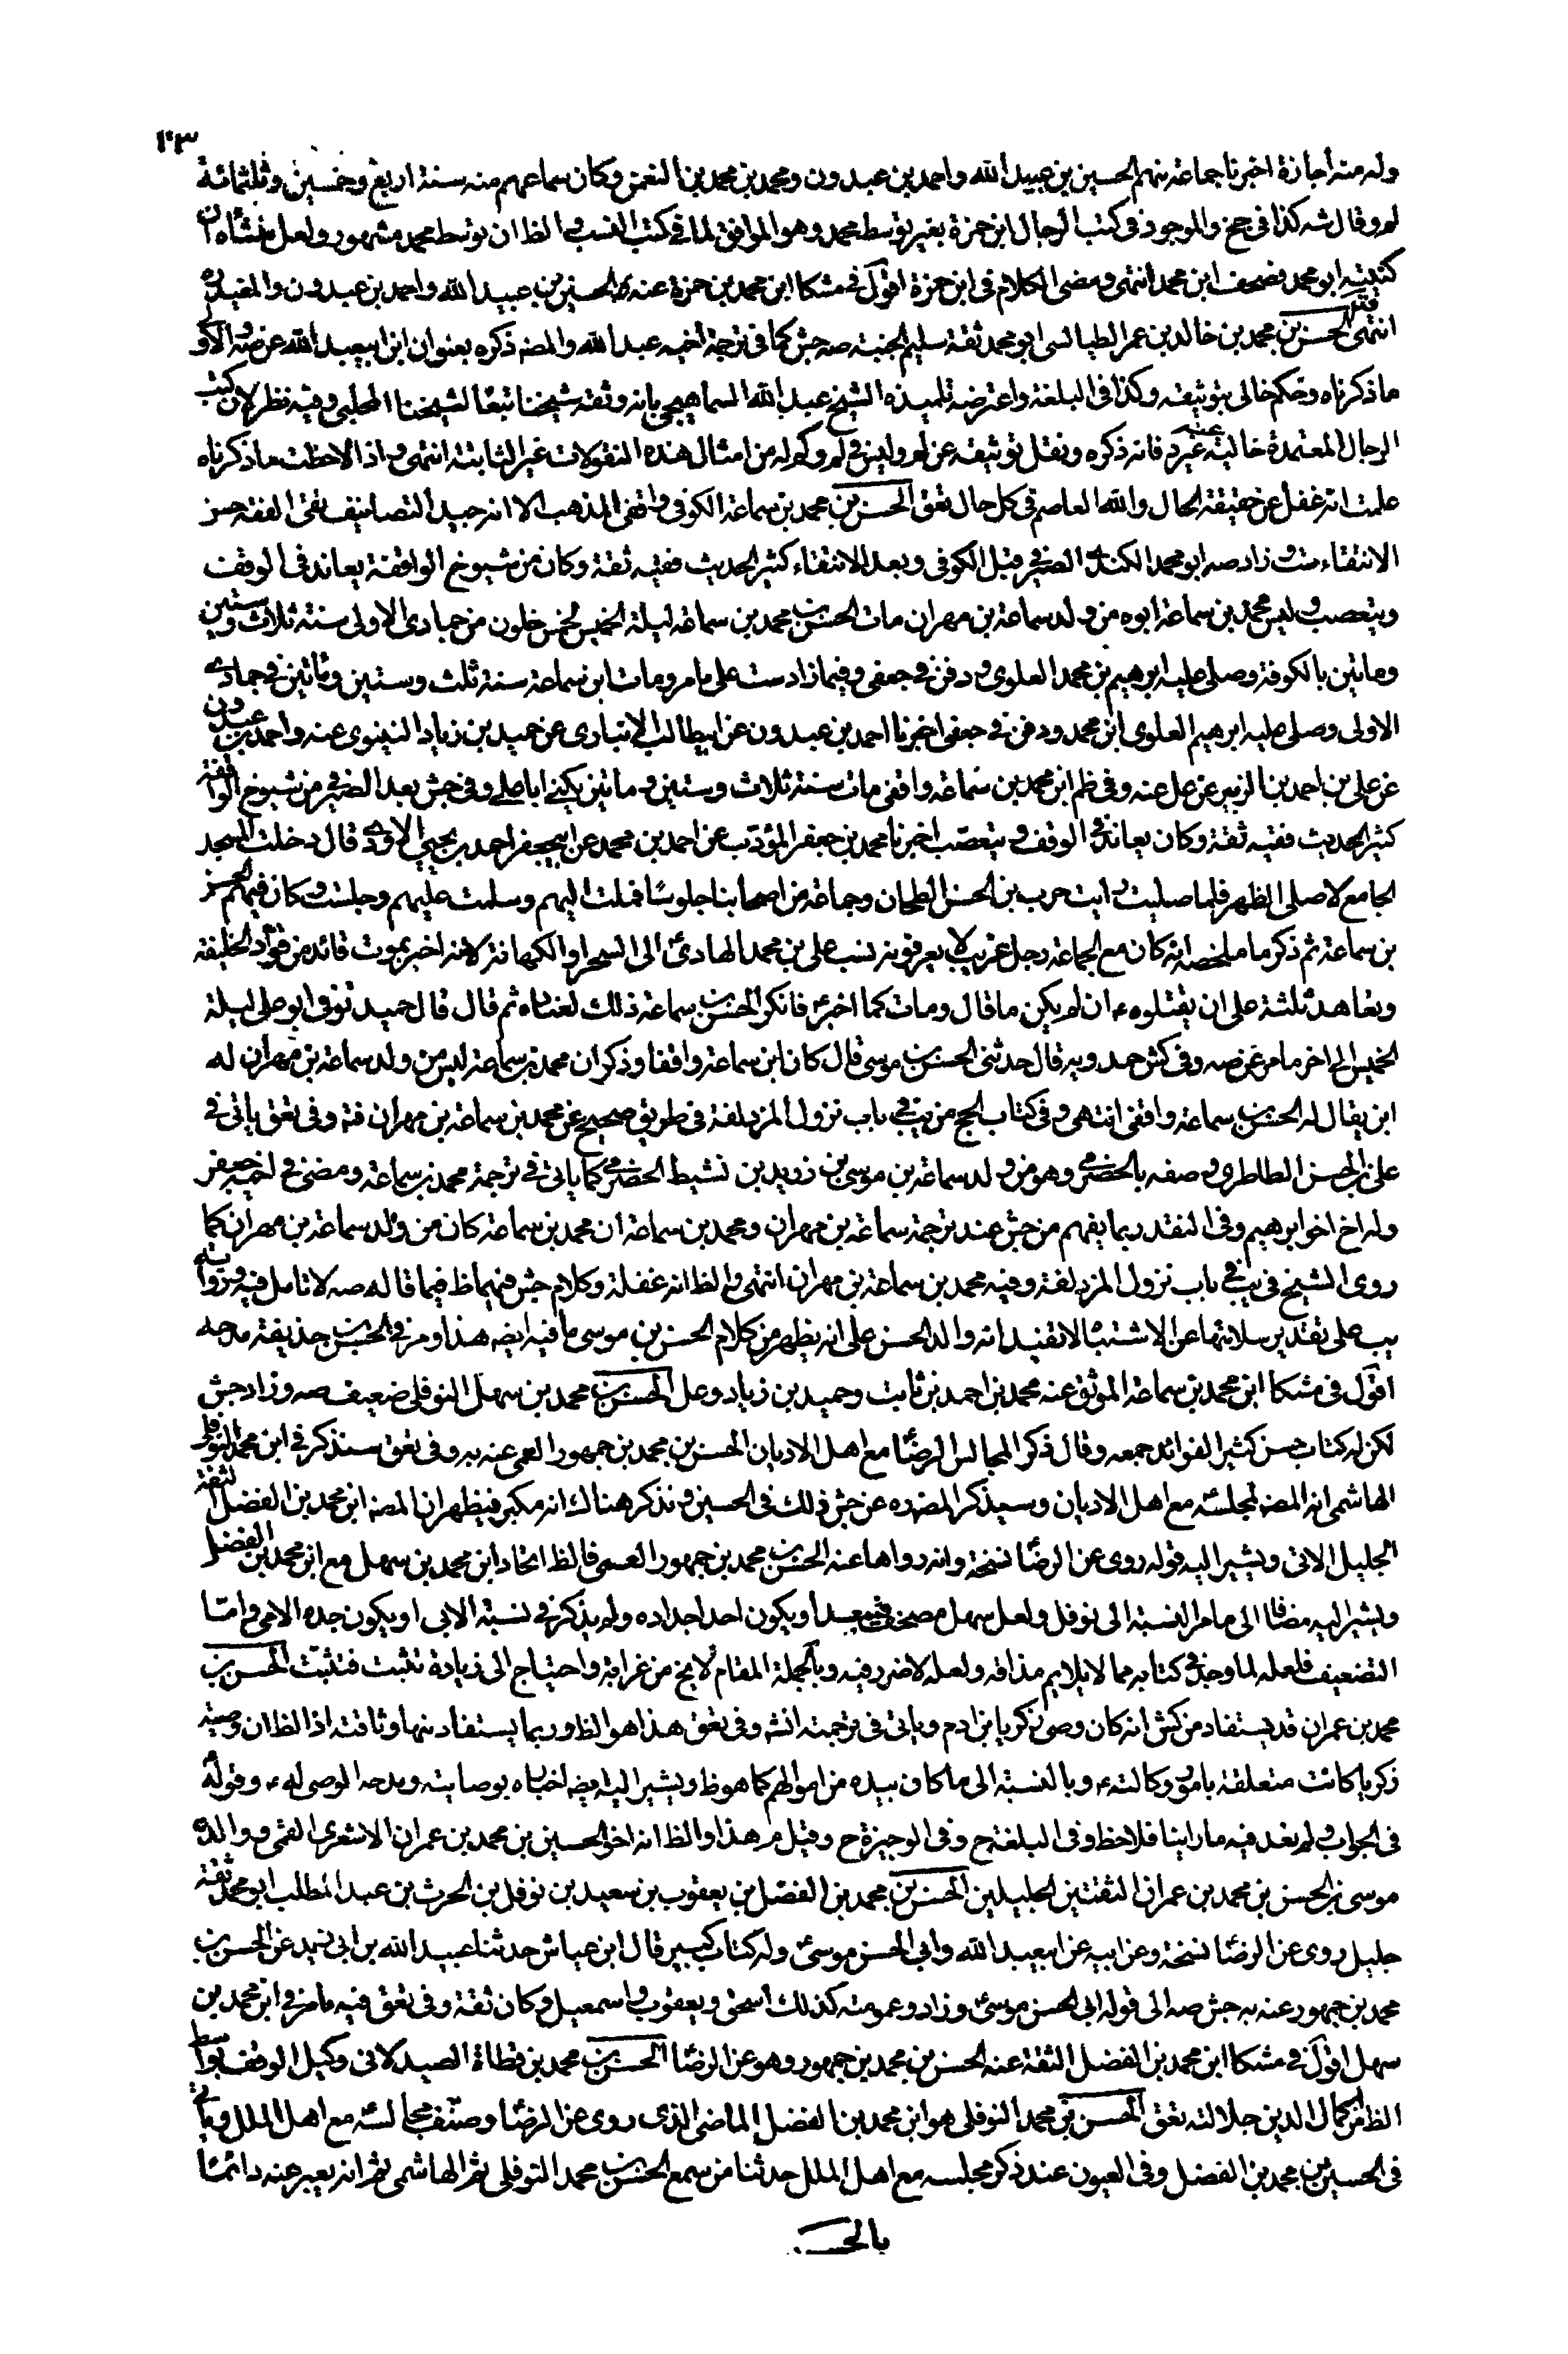 ٢٣
وله منه اجازة اخبرنا جماعة منهم الحسين بن عبيد الله واحمد بن عبدون ومحمد بن محمد بن النعمن وكان سماعهم منه سنة اربع وخمسين وثلثمائة
لم وقال شه كذا في جخ والموجود في كتب الرجال ابن حمزة بغير توسط محمد وهو الموافق لما في كتب النسب والظ ان توسط محمد مشهور ولعل منشاه ان
كنيته ابو محمد فصحف ابن محمد انتهى ومضى الكلام في ابن حمزة اقول في مشكا ابن محمد بن حمزة عنه الحسين بن عبيد الله واحمد بن عبدون والمفيد ره
انتهى الحسن بن محمد بن خالد بن عمر الطيالسى ابو محمد ثقة سليم الجنبة صه جش كما في ترجمة اخيه عبد الله والمصه ذكره بعنوان ابن ابيعبد الله عن ضه والاولى
ما ذكرناه وحكم خالى بتوثيقه وكذا في البلغة واعترضه تلميذه الشيخ عبد الله السماهيجى بانه وثقه شيخنا تبعا لشيخنا المجلسى وفيه نظر لان كتب
الرجال المعتمدة خالية عنه غير د فانه ذكره ونقل توثيقه عن لم وليس في لم وكم له من امثال هذه النقولات غير الثابتة انتهى واذا لاحظت ما ذكرناه
علمت انه غفل عن حقيقة الحال والله العاصم في كل حال تعق الحسن بن محمد بن سماعة الكوفى واقفى المذهب الا انه جيد التصانيف نقى الفقه حسن
الانتقاء ست وزاد صه ابو محمد الكندى الصيرفي قبل الكوفى وبعد الانتقاء كثير الحديث فقيه ثقة وكان من شيوخ الواقفة يعاند في الوقف
ويتعصب وليس محمد بن سماعة ابوه من ولد سماعة بن مهران مات الحسن بن محمد بن سماعة ليلة الخميس لخمس خلون من جمادى الاولى سنة ثلاث وستين
ومائتين بالكوفة وصلى عليه ابرهيم بن محمد العلوى ودفن في جعفى وفيما زاد ست على ما مر ومات ابن سماعة سنة ثلث وستين ومائتين في جمادى
الاولى وصلى عليه ابرهيم العلوى ابن محمد ودفن في جعفى اخبرنا احمد بن عبدون عن ابيطالب الانبارى عن حميد بن زياد النينوى عنه واحمد بن عبدون
عن على بن احمد بن الزبير عن عل عنه وفي ظم ابن محمد بن سماعة واقفى مات سنة ثلاث وستين ومائتين يكنى ابا على وفي جش بعد الصيرفي من شيوخ الواقفة
كثير الحديث فقيه ثقة وكان يعاند في الوقف ويتعصب اخبرنا محمد بن جعفر المؤدب عن احمد بن محمد عن ابيجعفر احمد بن يحيى الاودى قال دخلت المسجد
الجامع لاصلى الظهر فلما صليت رايت حرب بن الحسن الطحان وجماعة من اصحابنا جلوسا فملت اليهم وسلمت عليهم وجلست وكان فيهم الحسن
بن سماعة ثم ذكر ما ملخصه انه كان مع الجماعة رجل غريب لا يعرفونه نسب على بن محمد الهادى الى السحر او الكهانة لانه اخبر بموت قائد من قواد الخليفة
وتعاهد ثلثة على ان يقتلوه ان لم يكن ما قال ومات كما اخبر فانكر الحسن بن سماعة ذلك لعناده ثم قال قال حميد توفى ابو على ليلة
الخميس الى اخر ما مر عن صه وفي كش حمدويه قال حدثنى الحسن بن موسى قال كان ابن سماعة واقفا وذكر ان محمد بن سماعة ليس من ولد سماعة بن مهران له
ابن يقال له الحسن بن سماعة واقفى انتهى وفي كتاب الحج من يب في باب نزول المزدلفة في طريق صحيح عن محمد بن سماعة بن مهران فتم وفي تعق ياتى في
على بن الحسن الطاطرى وصفه بالحضرمى وهو من ولد سماعة بن موسى بن زويد بن نشيط الحضرمى كما ياتى في ترجمة محمد بن سماعة ومضى في اخيه جعفر
وله اخ اخر ابرهيم وفي النقد ربما يفهم من جش عند ترجمة سماعة بن مهران ومحمد بن سماعة ان محمد بن سماعة كان من ولد سماعة بن مهران كما
روى الشيخ في يب في باب نزول المزدلفة وفيه محمد بن سماعة بن مهران انتهى والظ انه غفلة وكلام جش فيهما ظ فيما قاله صه لا تامل فيه ورواية
يب على تقدير سلامتها عن الاشتباه لا تفيد انه والد الحسن على انه يظهر من كلام الحسن بن موسى ما فيه ايضه هذا ومر في الحسن بن حذيفة مدحه
اقول في مشكا ابن محمد بن سماعة الموثق عنه محمد بن احمد بن ثابت وحميد بن زياد وعل الحسن بن محمد بن سهل النوفلى ضعيف صه وزاد جش
لكن له كتاب حسن كثير الفوائد جمعه وقال ذكر المجالس الرضا مع اهل الاديان الحسن بن محمد بن جمهور العمى عنه به وفي تعق سنذكر في ابن محمد النوفلى
الهاشمى انه المصه لمجلسه مع اهل الاديان وسيذكر المصره عن جش ذلك في الحسين ونذكر هناك انه مكبر فيظهر ان المصه ابن محمد بن الفضل الثقة
الجليل الاتى ويشير اليه قوله روى عن الرضا نسخة وانه رواها عنه الحسن بن محمد بن جمهور العمى فالظ اتحاد ابن محمد بن سهل مع ابن محمد بن الفضل
ويشير اليه مضافا الى ما مر النسبة الى نوفل ولعل سهل مصحف سعيد او يكون احد اجداده ولم يذكر في نسبة الابى او يكون جده الامى واما
التضعيف فلعله لما وجد في كتابه مما لا يلايم مذاقه ولعله لا ضرر فيه وبالجملة المقام لا يخ من غرابة واحتياج الى زيادة تثبت فتثبت الحسن بن
محمد بن عمران قد يستفاد من كش انه كان وصى زكريا بن ادم وياتى في ترجمته انشه وفي تعق هذا هو الظ وربما يستفاد منها وثاقته اذ الظ ان وصية
زكريا كانت متعلقة بامور وكالته وبالنسبة الى ما كان بيده من اموالهم كما هو ظ ويشير اليه ايضه اخباره بوصايته ومدحه الموصى له وقوله
في الجواب ولم تعد فيه ما راينا فلاحظ وفي البلغة ح وفي الوجيزة ح وقيل م هذا والظ انه اخو الحسين بن محمد بن عمران الاشعرى القمى ووالده
موسى بن الحسن بن محمد بن عمران الثقتين الجليلين الحسن بن محمد بن الفضل بن يعقوب بن سعيد بن نوفل بن الحرث بن عبد المطلب ابو محمد ثقة
جليل روى عن الرضا نسخة وعن ابيه عن ابيعبد الله وابى الحسن موسى وله كتاب كبير قال ابن عياش حدثنا عبيد الله بن ابى زيد عن الحسن بن
محمد بن جمهور عنه به جش صه الى قوله ابى الحسن موسى وزاد وعمومته كذلك اسحق ويعقوب واسمعيل وكان ثقة وفي تعق فيه ما مر في ابن محمد بن
سهل اقول في مشكا ابن محمد بن الفضل الثقة عنه الحسن بن محمد بن جمهور وهو عن الرضا الحسن بن محمد بن قطاة الصيدلانى وكيل الوقف بواسط
الظ من كمال الدين جلالته تعق الحسن بن محمد النوفلى هو ابن محمد بن الفضل الماضى الذى روى عن الرضا وصنف مجالسه مع اهل الملل وياتى
في الحسين بن محمد بن الفضل وفي العيون عند ذكر مجلسه مع اهل الملل حدثنا من سمع الحسن بن محمد النوفلى ثم الهاشمى ثم انه يعبر عنه دائما
بالحسن